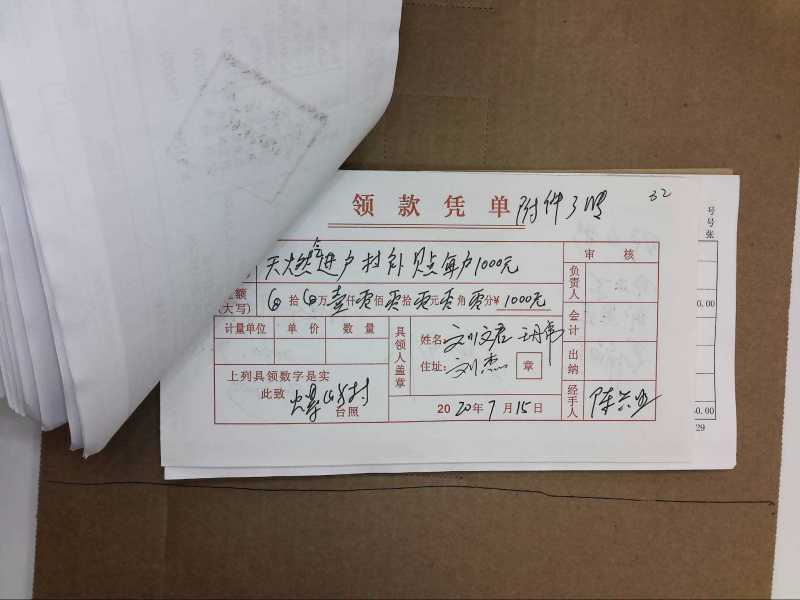 领款凭单 附件3晴 32
天燃气进户村补贴每户1000元
金额
(大写) ⊗拾⊗万壹仟零佰零拾零元零角零分¥1000元
计量单位 单价 数量
上列具领数字是实
此致
台照
具领人盖章
姓名: 刘文君
住址: 刘杰 章
2020年7月15日
审核
负责人
会计
出纳
经手人
号
号
张
0.00
50.00
29